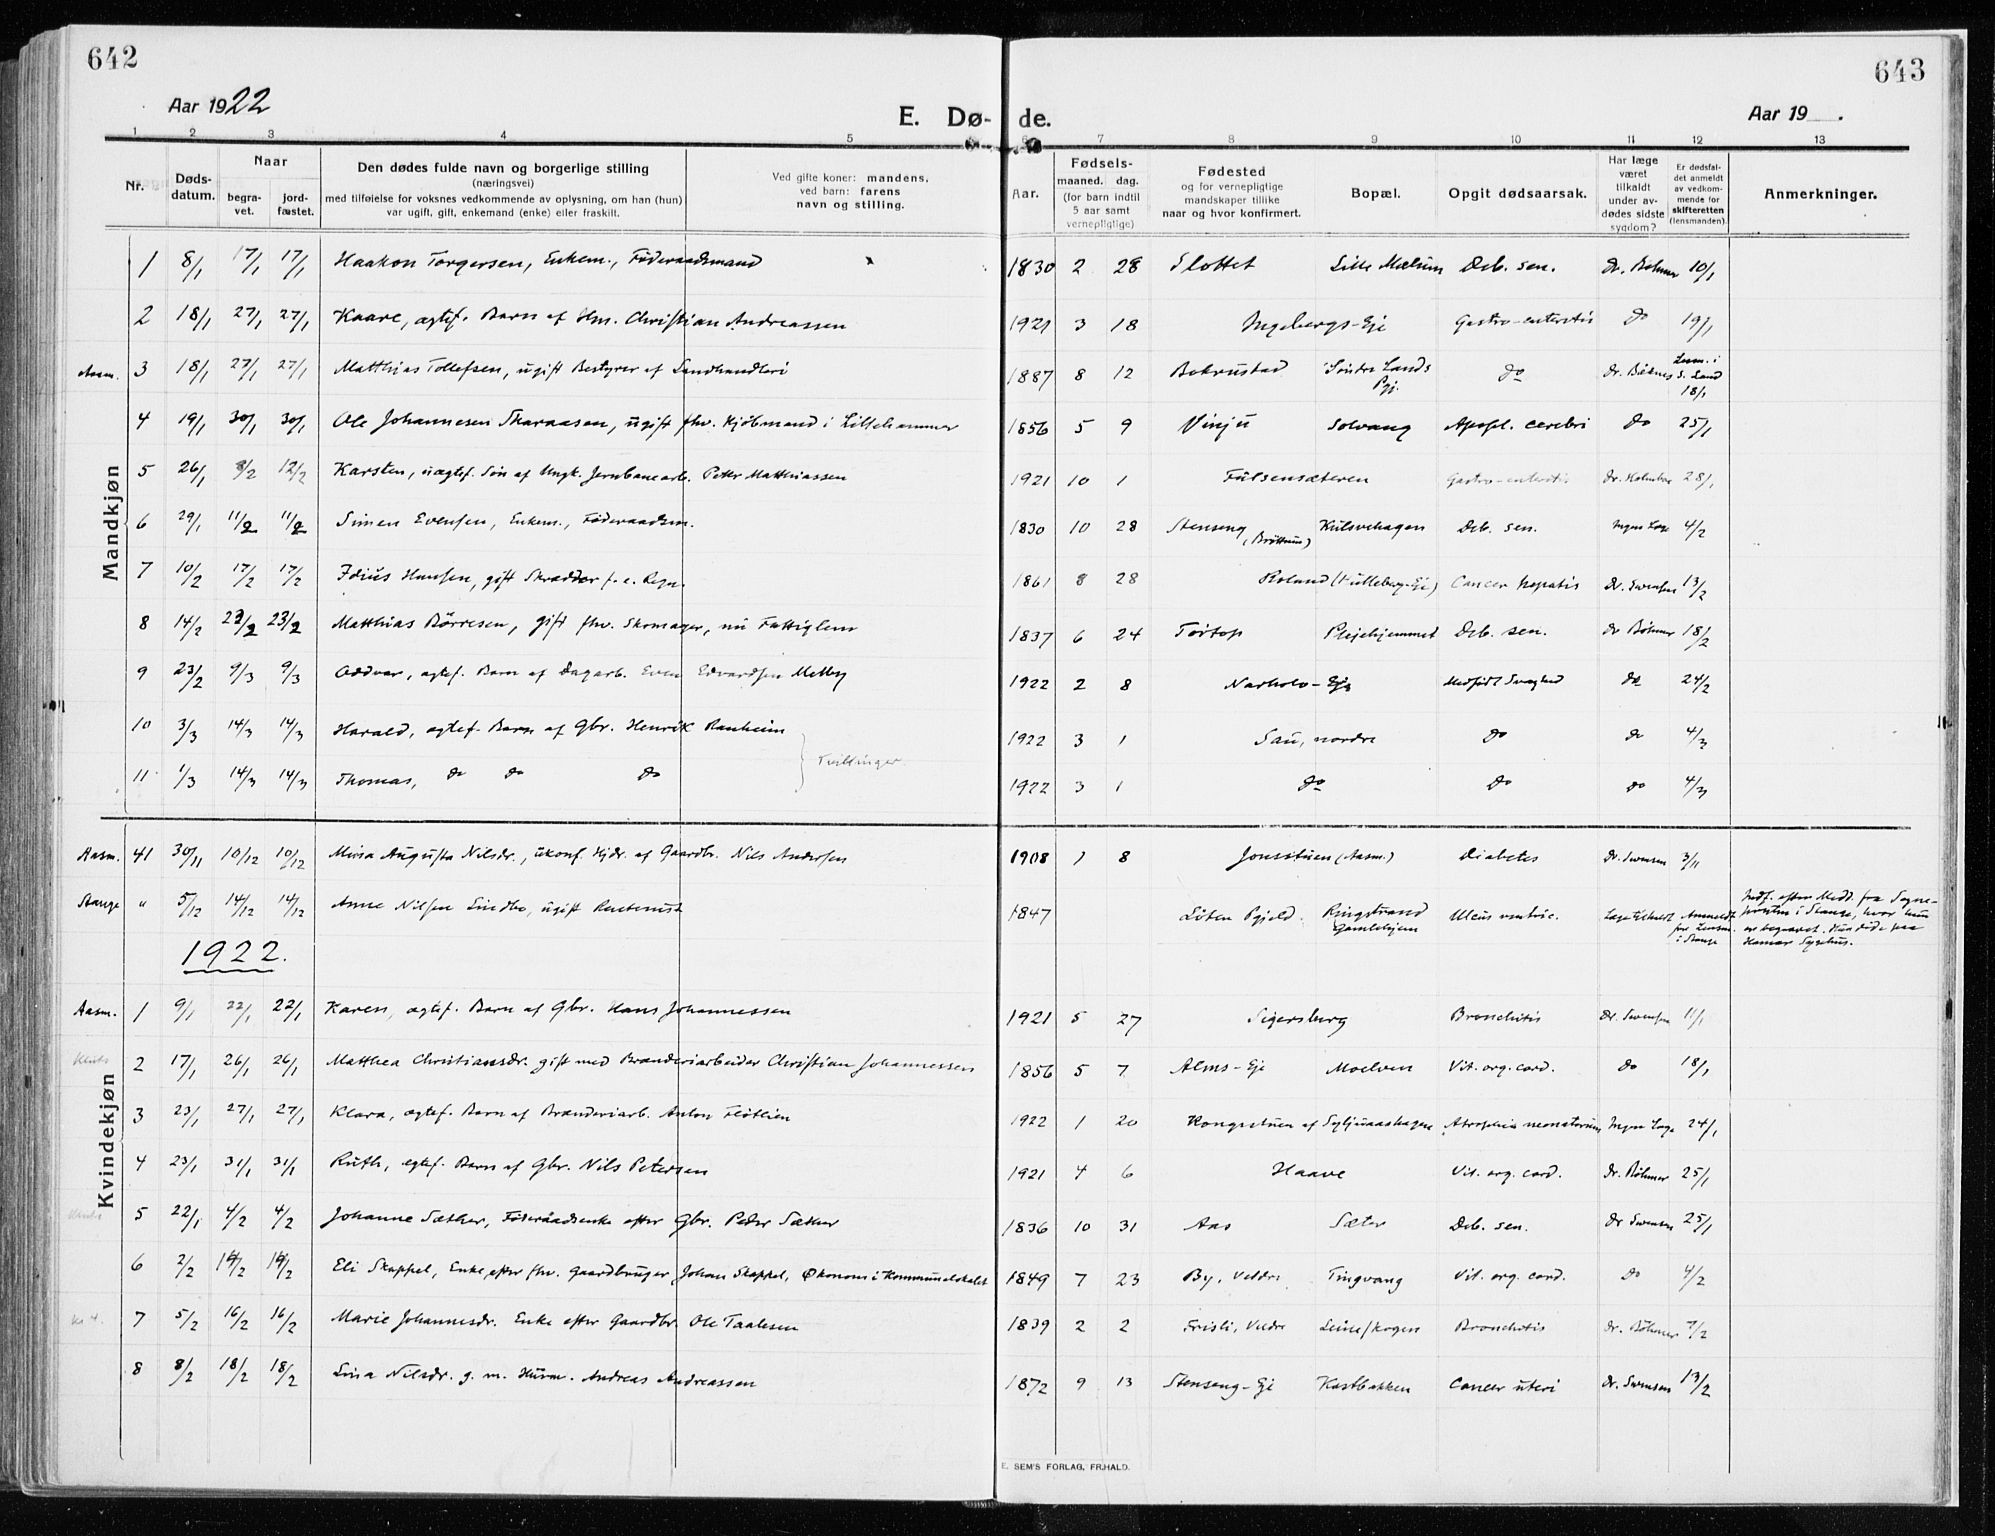 642
643
Aar 1922
E. Dø- de.
Aar 19 .
1 2 3 4 5 6 7 8 9 10 11 12 13
Nr. Døds-datum. Naar begra-vet. jord-fæstet. Den dødes fulde navn og borgerlige stilling (næringsvei) med tilføielse for voksnes vedkommende av oplysning, om han (hun) var ugift, gift, enkemand (enke) eller fraskilt. Ved gifte koner: mandens, ved barn: farens navn og stilling. Aar. Fødsels- maaned. dag. (for barn indtil 5 aar samt vernepligtige) Fødested og for vernepligtige mandskaper tillike naar og hvor konfirmert. Bopæl. Opgit dødsaarsak. Har læge været tilkaldt under av-dødes sidste sygdom? Er dødsfal-det anmeldt av vedkom-mende for skifteretten (lensmanden). Anmerkninger.
Mandkjøn
1 8/1 17/1 17/1 Haakon Torgersen, Enkem., Føderaadsmand 1830 2 28 Slottet Lille Mælum Deb. sen. Dr. Bøhmer 10/1
2 18/1 27/1 27/1 Kaare, ægtef. Barn af Hm. Christian Andreassen 1921 3 18 Ingebergs-Eje Gastro-enteritis Do 19/1
Aasm. 3 18/1 27/1 27/1 Matthias Tollefsen, ugift Bestyrer af Landhandleri 1887 8 12 Søndre Lands Pgj. Do Lensm. i S. Land 18/1
4 19/1 30/1 30/1 Ole Johannesen Skaraasen, ugift fhv. Kjøbmand i Lillehammer 1856 5 9 Vinju Solvang Apopl. cerebri Do 25/1
5 26/1 8/2 12/2 Karsten, uægtef. Søn af Ungk. Jernbanearb. Peter Matthiassen 1921 10 1 Fulsensæteren Gastro-enteritis 28/1
6 29/1 11/2 11/2 Simen Evensen, Enkem., Føderaadsm. 1830 10 28 Stenseng (Brøttum) Kulsvehagen Deb. sen. Ingen Læge 4/2
7 10/2 17/2 17/2 Hansen, gift Skrædder f. e. Regn. 1861 8 28 Roland Cancer hepatis Dr. Svensen 13/2
8 14/2 23/2 23/2 Matthias Børresen, gift fhv. Skomager, nu Fattiglem 1837 6 24 Tørtop Plejehjemmet Deb. sen. Dr Bøhmer 18/2
9 23/2 9/3 9/3 Oddvar, ægtef. Barn af Dagarb. Even Edvardsen Melby 1922 2 8 Narholo-Eje Medfødt Svaghed do 24/2
10 3/3 14/3 14/3 Harald, ægtef. Barn af Gbr. Henrik Ranheim 1922 3 1 Sau, nordre Do do 4/3
Tvillinger
11 1/3 14/3 14/3 Thomas, do do do 1922 3 1 Do Do do 4/3
Kvindekjøn
Aasm. 41 30/11 10/12 10/12 Mina Augusta Nilsdr., ukonf. Hjdr. af Gaardbr. Nils Andersen 1908 1 8 Jonsstuen (Aasm.) Diabetes Dr. Svensen 3/11
Stange " 5/12 14/12 14/12 Anne Nilsen Lindbo, ugift Renteneist 1847 Løten Pgjeld. Ringstrand Gamlehjem Ulcus ventric. Læge tilkaldt Anmeldt for Lensm. i Stange Indf. efter Medd. fra Sogne-presten i Stange, hvor hun er begravet. Hun døde paa Hamar Sygehus.
1922.
Aasm. 1 9/1 22/1 22/1 Karen, ægtef. Barn af Gbr. Hans Johannessen 1921 5 27 Sigersberg Bronchitis Dr. Svensen 11/1
2 17/1 26/1 26/1 Matthea Christiansdr. gift med Brænderiarbeider Christian Johannessen 1856 5 7 Alms-Eje Moelven Vit. org. cord. Do 18/1
3 23/1 27/1 27/1 Klara, ægtef. Barn af Brænderiarb. Anton Fløtlien 1922 1 20 Kongsstuen af Syljuaashagen Atrophia neonatorum Ingen Læge 24/1
4 23/1 31/1 31/1 Ruth, ægtef. Barn af Gbr. Nils Petersen 1921 4 6 Haave Vit. org. cord. Dr. Bøhmer 25/1
5 22/1 4/2 4/2 Johanne Sæther, Føderaadsenke efter Gbr. Peder Sæther 1836 10 31 Aas Sæter Deb. sen. Dr Svensen 25/1
6 2/2 14/2 14/2 Eli Skappel, Enke efter fhv. Gaardbruger Johan Skappel, Økonom i Kommunelokalet 1849 7 23 By, Veldre Tingvang Vit. org. cord. Do 4/2
7 5/2 16/2 16/2 Marie Johannesdr. Enke efter Gaardbr. Ole Taalesen 1839 2 2 Frisli, Veldre Leineskogen Bronchitis Dr. Bøhmer 7/2
8 8/2 18/2 18/2 Lina Nilsdr. g. m. Husm. Andreas Andreassen 1872 9 13 Stenseng-Eje Kastbakken Cancer uteri Dr. Svensen 13/2
E. SEM'S FORLAG, FR.HALD.